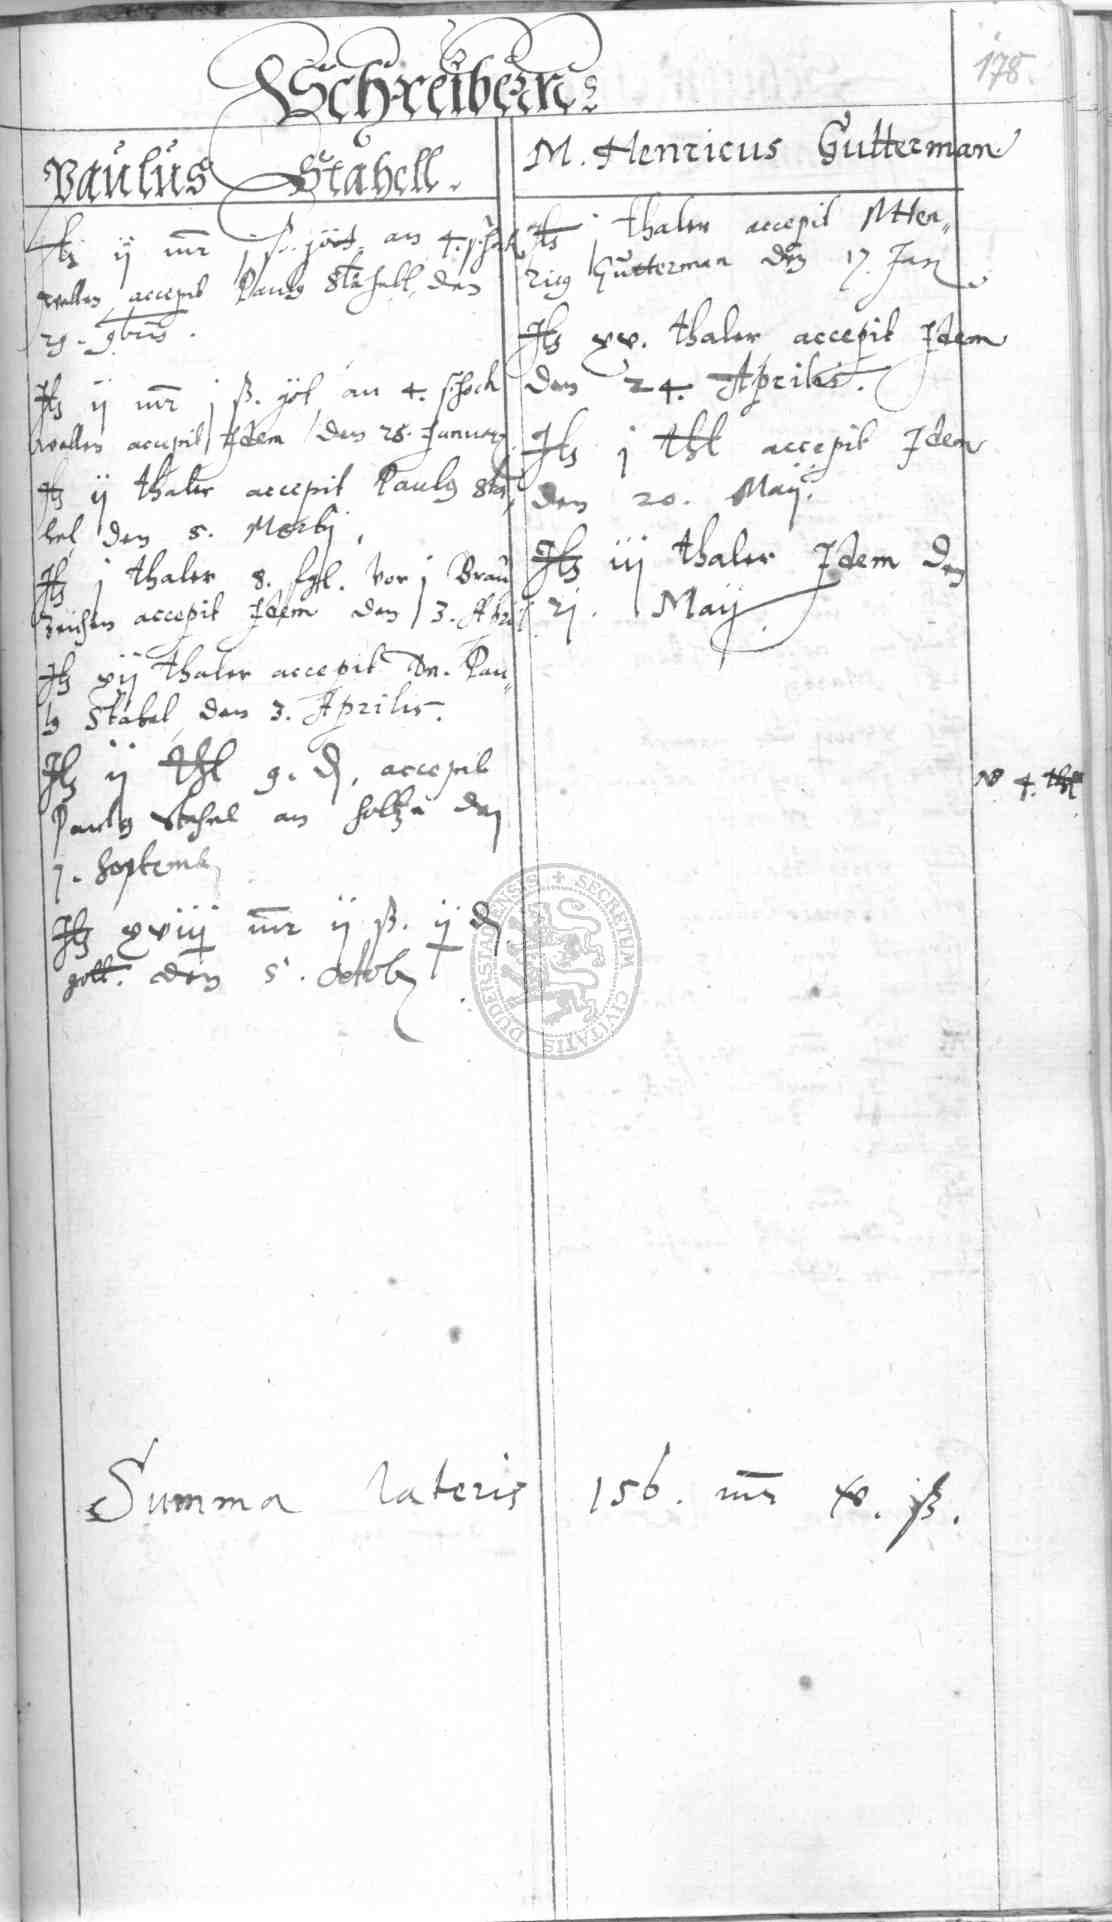 178.
Schreibern
Paulus Stahell.
Itz ij mr j ß. an 4. schock
wellen accepit Paulg Stahell, den
29. 9bris.
Itz ij mr j ß. an 4. schock
wellen accepit Idem den 28. Januarij
Itz ij thaler accepit Paulg Sta,
hel den 5. Martij,
Itz j thaler 8. sgl. vor j Brau
zeichen accepit Idem den 3. April
Itz xij thaler accepit Dn. Pau„
lg Stahel, den 3. Aprilis.
Itz ij thl 9. d, accepit
Paulg Stahel an holtz den
7. Septemb
Itz xviij mr ij ß. ij d
gott. den 5. Octob
M. Henricus Gutterman
Itz j thaler accepit M Hen„
ricg Gutterman den 17. Jan
Itz xv. thaler accepit Idem
den 24. Aprilis.
Itz j thl accepit Idem
den 20. Maij.
Itz iij thaler Idem den
21. Maij
NB 4. thl
SECRETUM CIVITATIS DUDERSTADENSIS
Summa lateris 156. mr xv. ß.